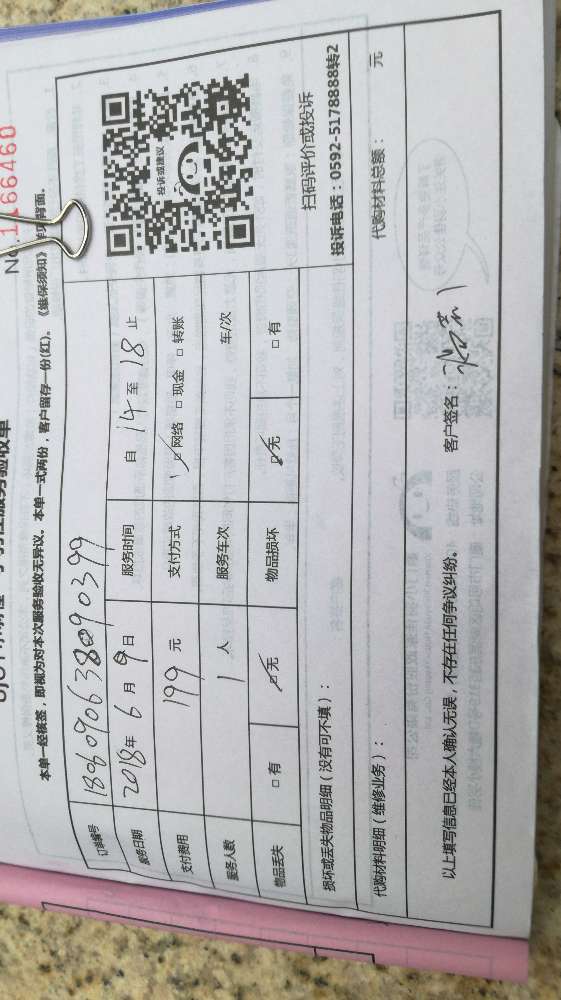 No.1166460
服务验收单
本单一经核签，即视为对本次服务验收无异议。本单一式两份，客户留存一份(红)。《维保须知》
订单编号 180609063809 0399
服务日期 2018年 6 月 9 日 服务时间 自 14 至 18 止
支付费用 199 元 支付方式 ☑网络 □现金 □转账
服务人数 1 人 服务车次 车/次
物品丢失 □有 ☑无 物品损坏 ☑无 □有
投诉或建议
扫码评价或投诉
投诉电话：0592-5178888转2
损坏或丢失物品明细（没有可不填）：
代购材料明细（维修业务）： 代购材料总额： 元
以上填写信息已经本人确认无误，不存在任何争议纠纷。 客户签名：